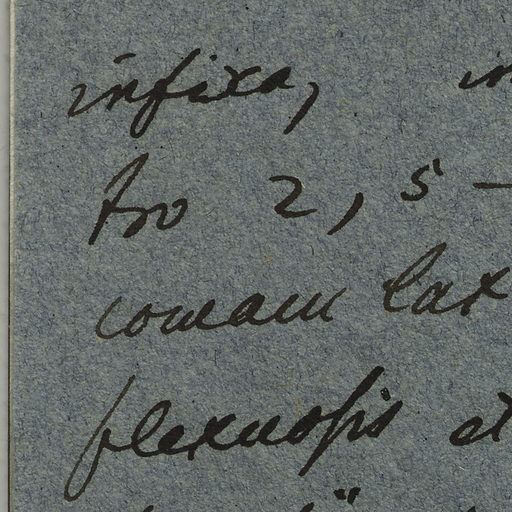 infixa, in
tro 2,5-
comam lax
flexuosis et